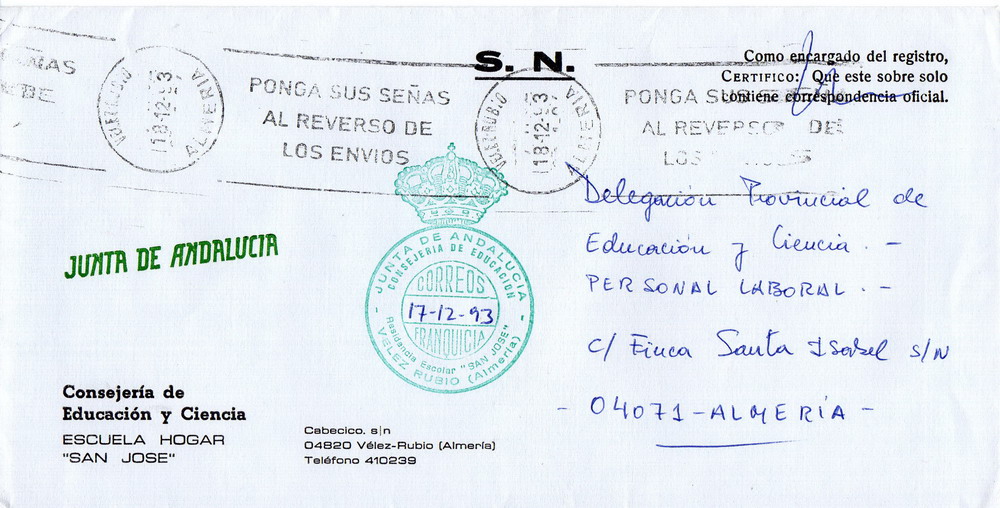 S. N.
Como encargado del registro,
CERTIFICO: Que este sobre solo
contiene correspondencia oficial.
EÑAS
EBE
VELEZ RUBIO
18-12-93
ALMERIA
PONGA SUS SEÑAS
AL REVERSO DE
LOS ENVIOS
VELEZ RUBIO
18-12-93
ALMERIA
PONGA SUS
AL REVERSO DE
LOS
JUNTA DE ANDALUCIA
JUNTA DE ANDALUCIA
CONSEJERIA DE EDUCACIÓN
CORREOS
17-12-93
FRANQUICIA
Residencia Escolar "SAN JOSE"
- VELEZ RUBIO (Almería) -
Delegación Provincial de
Educación y Ciencia . -
PERSONAL LABORAL . -
c/ Finca Santa Isabel s/n
- 04071 - ALMERÍA -
Consejería de
Educación y Ciencia
ESCUELA HOGAR
"SAN JOSE"
Cabecico. s|n
04820 Vélez-Rubio (Almería)
Teléfono 410239